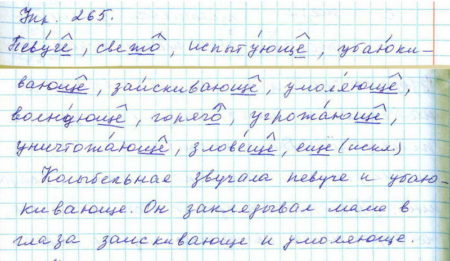 Упр. 265.
Певуче, свежо, испытующе, убаюки-
вающе, заискивающе, умоляюще,
волнующе, горячо, угрожающе,
уничтожающе, зловеще, еще (искл)
Колыбельная звучала певуче и убаю-
кивающе. Он заглядывал маме в
глаза заискивающе и умоляюще.